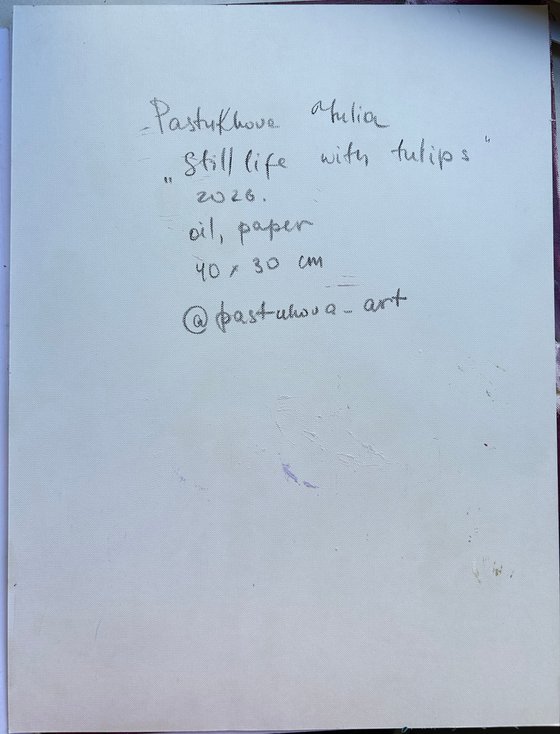 Pastukhova Yulia
„Still life with tulips"
2026.
oil, paper
40 x 30 cm
@pastuhova_art